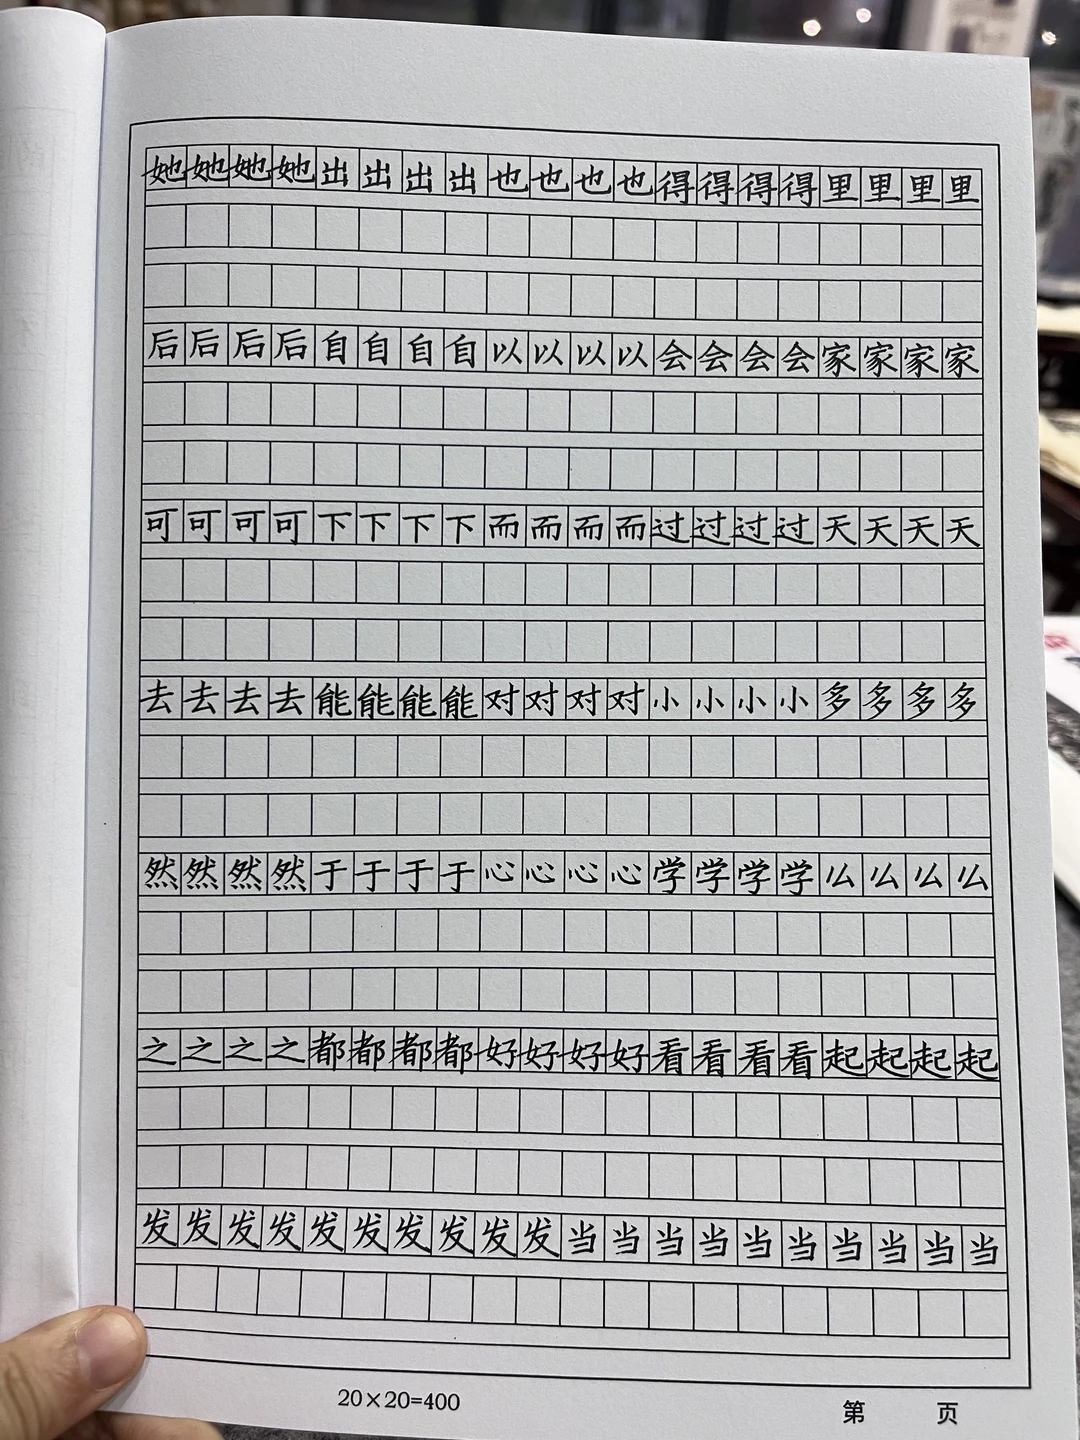 她她她她出出出出也也也也得得得得里里里里
后后后后自自自自以以以以会会会会家家家家
可可可可下下下下而而而而过过过过天天天天
去去去去能能能能对对对对小小小小多多多多
然然然然于于于于心心心心学学学学么么么么
之之之之都都都都好好好好看看看看起起起起
发发发发发发发发发发当当当当当当当当当当
20×20=400 第 页